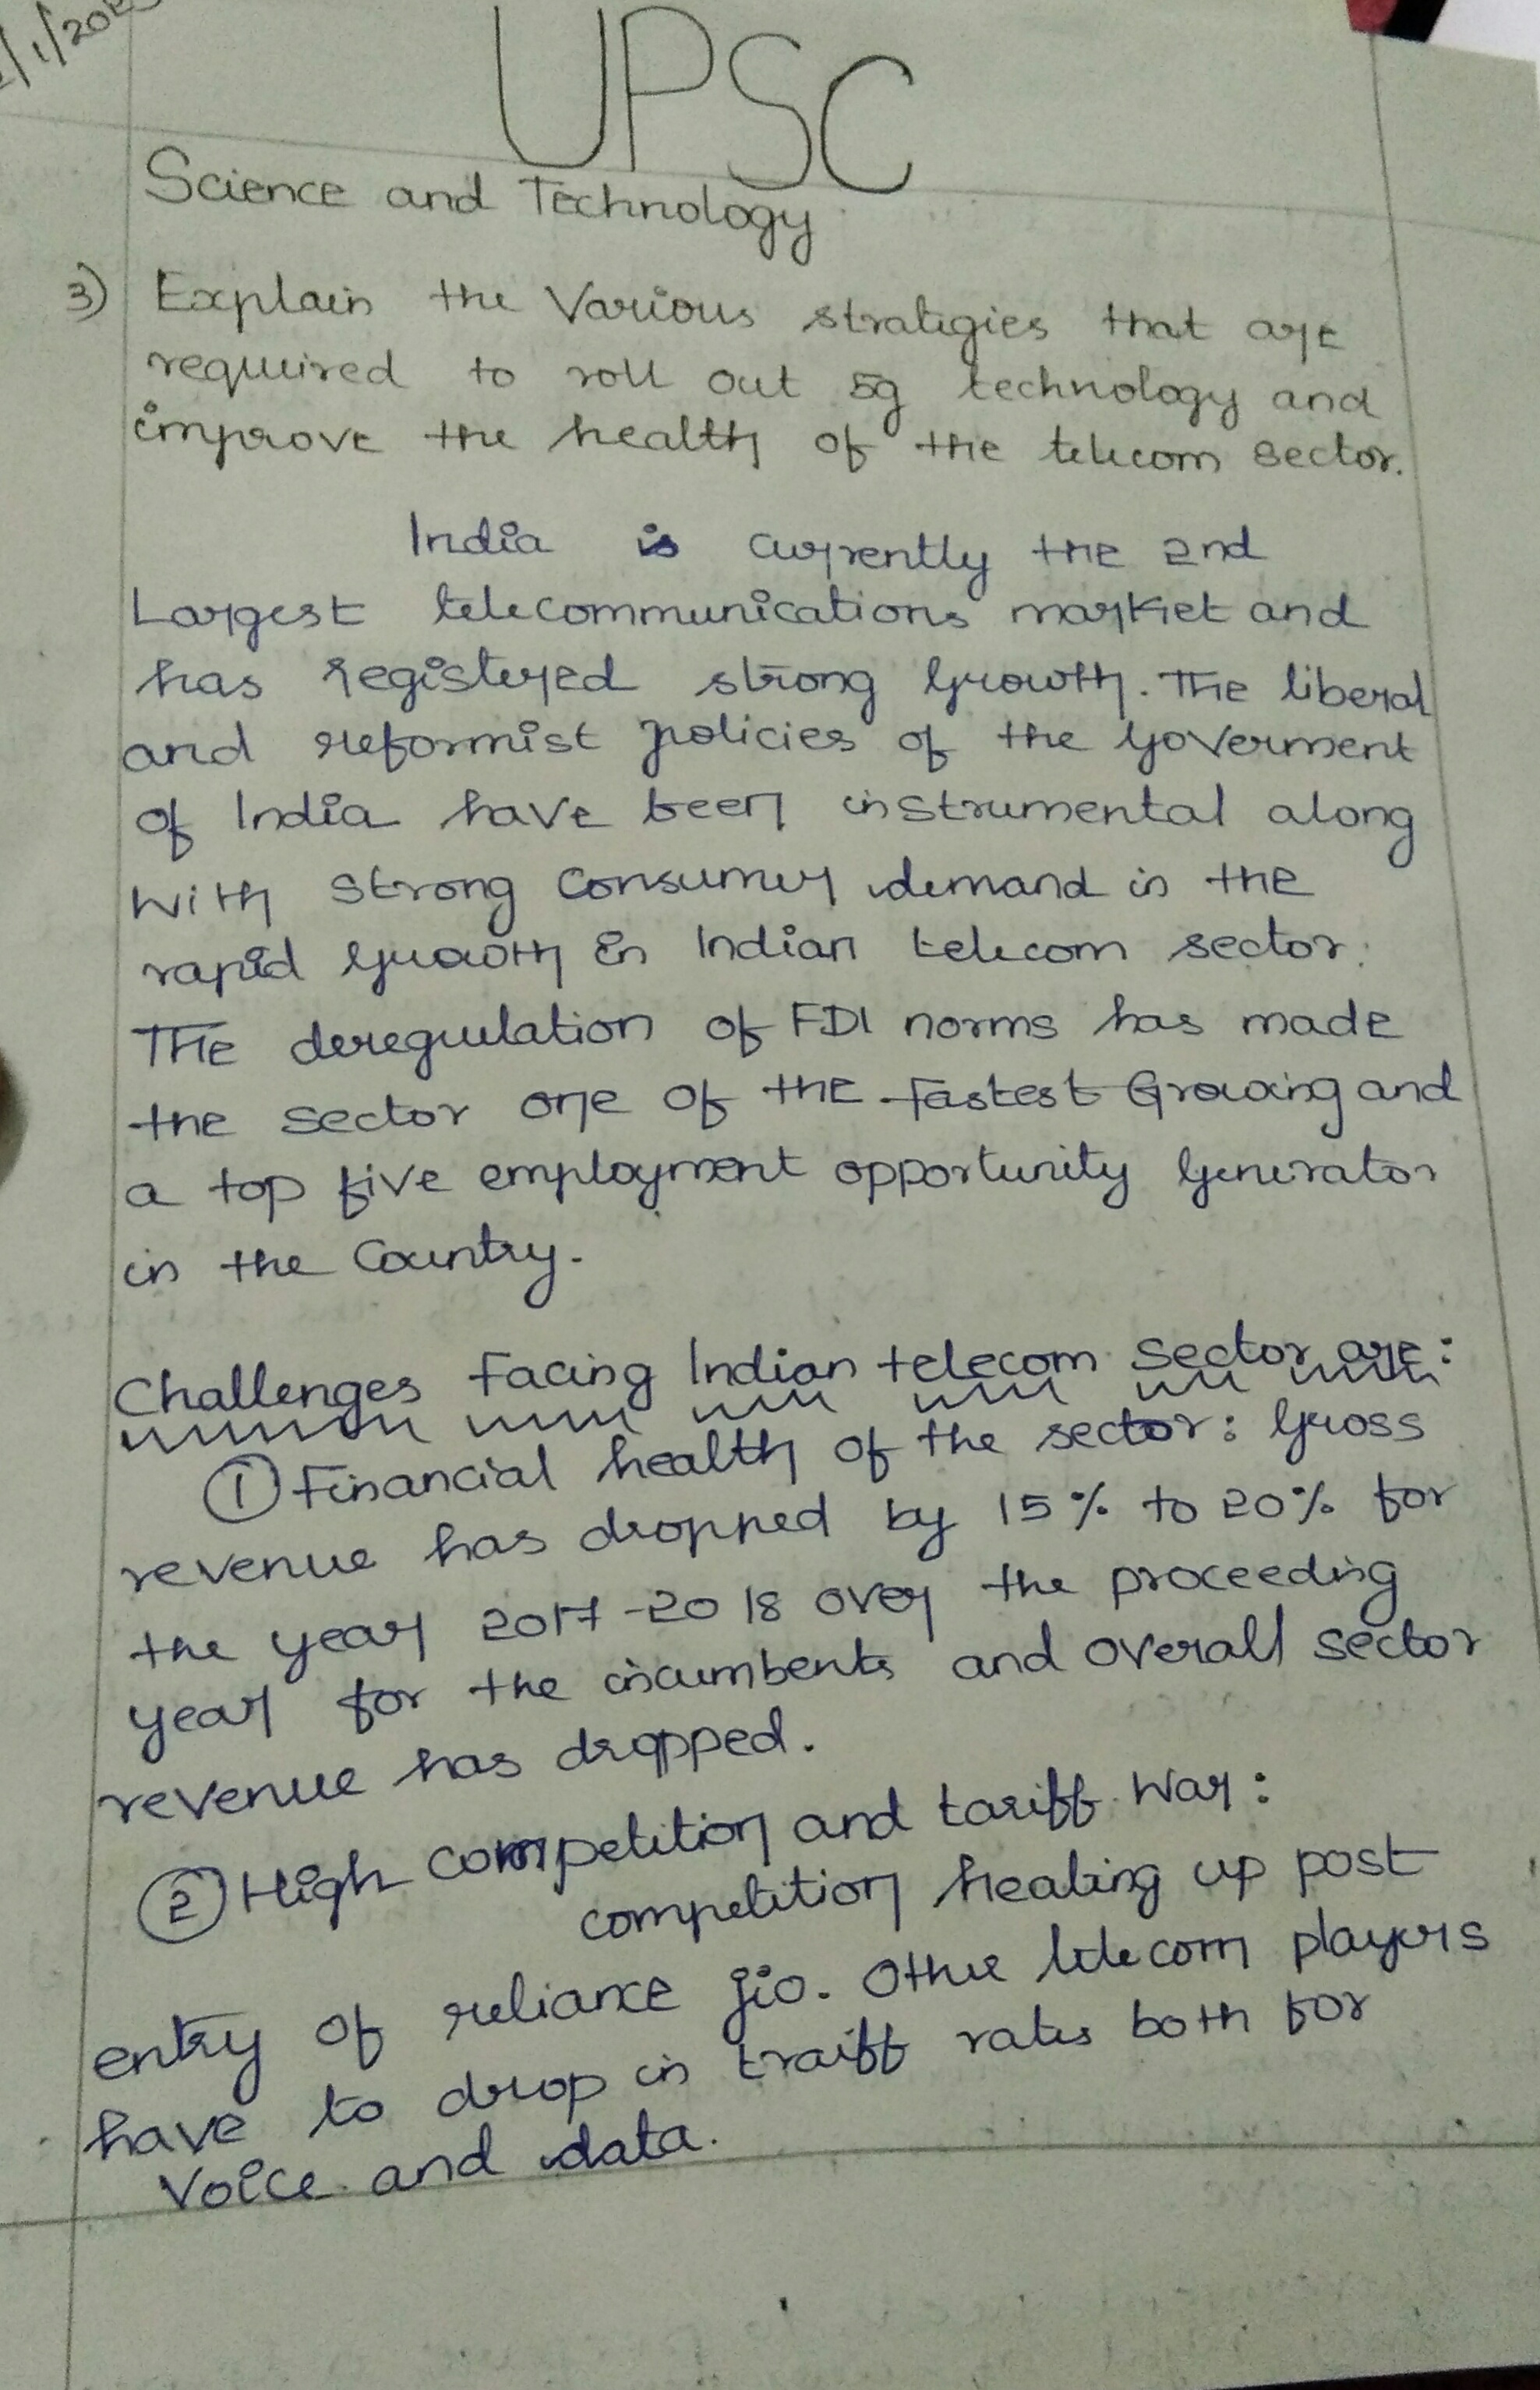 /1/20
UPSC
Science and Technology
3) Explain the Various strategies that are
required to roll out 5g technology and
improve the health of the telecom sector.
India is currently the 2nd
Largest telecommunications market and
has registered strong Growth. The liberal
and reformist policies of the Goverment
of India have been instrumental along
With strong consumer demand in the
rapid growth in Indian telecom sector.
The deregulation of FDI norms has made
the sector one of the fastest Growing and
a top five employment opportunity Generator
in the Country.
Challenges Facing Indian telecom sector are:
① Financial health of the sector: Gross
revenue has dropped by 15% to 20% for
the year 2017-2018 over the proceeding
year for the incumbents and overall sector
revenue has dropped.
② High competition and tariff War:
competition heating up post
entry of reliance jio. Other telecom players
have to drop in traiff rates both for
Voice and data.